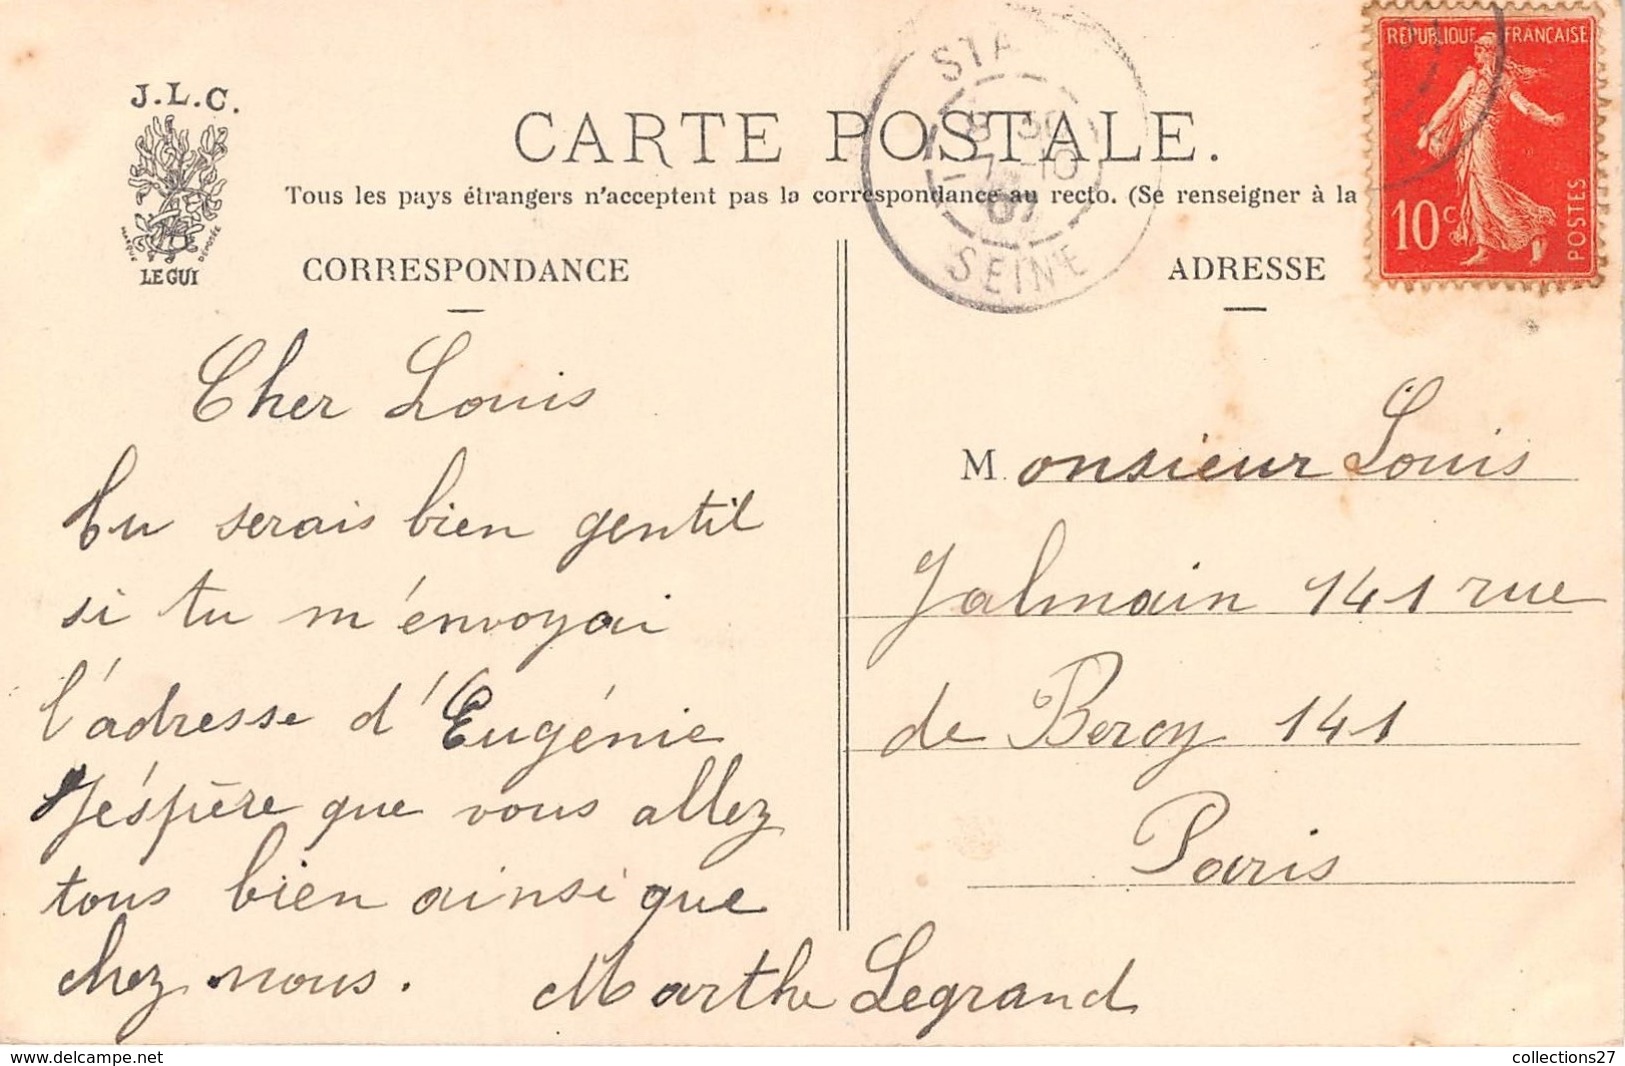 J.L.C.
MARQUE DÉPOSÉE
LE GUI
CARTE POSTALE.
Tous les pays étrangers n'acceptent pas la correspondance au recto. (Se renseigner à la
CORRESPONDANCE
ADRESSE
RÉPUBLIQUE FRANÇAISE
10c
POSTES
STA
8 30
7-10
07
SEINE
Cher Louis
Tu serais bien gentil
si tu m'envoyai
l'adresse d'Eugénie
J'éspère que vous allez
tous bien ainsi que
chez nous.
Marthe Legrand
Monsieur Louis
Jalmain 141 rue
de Bercy 141
Paris
collections27
www.delcampe.net